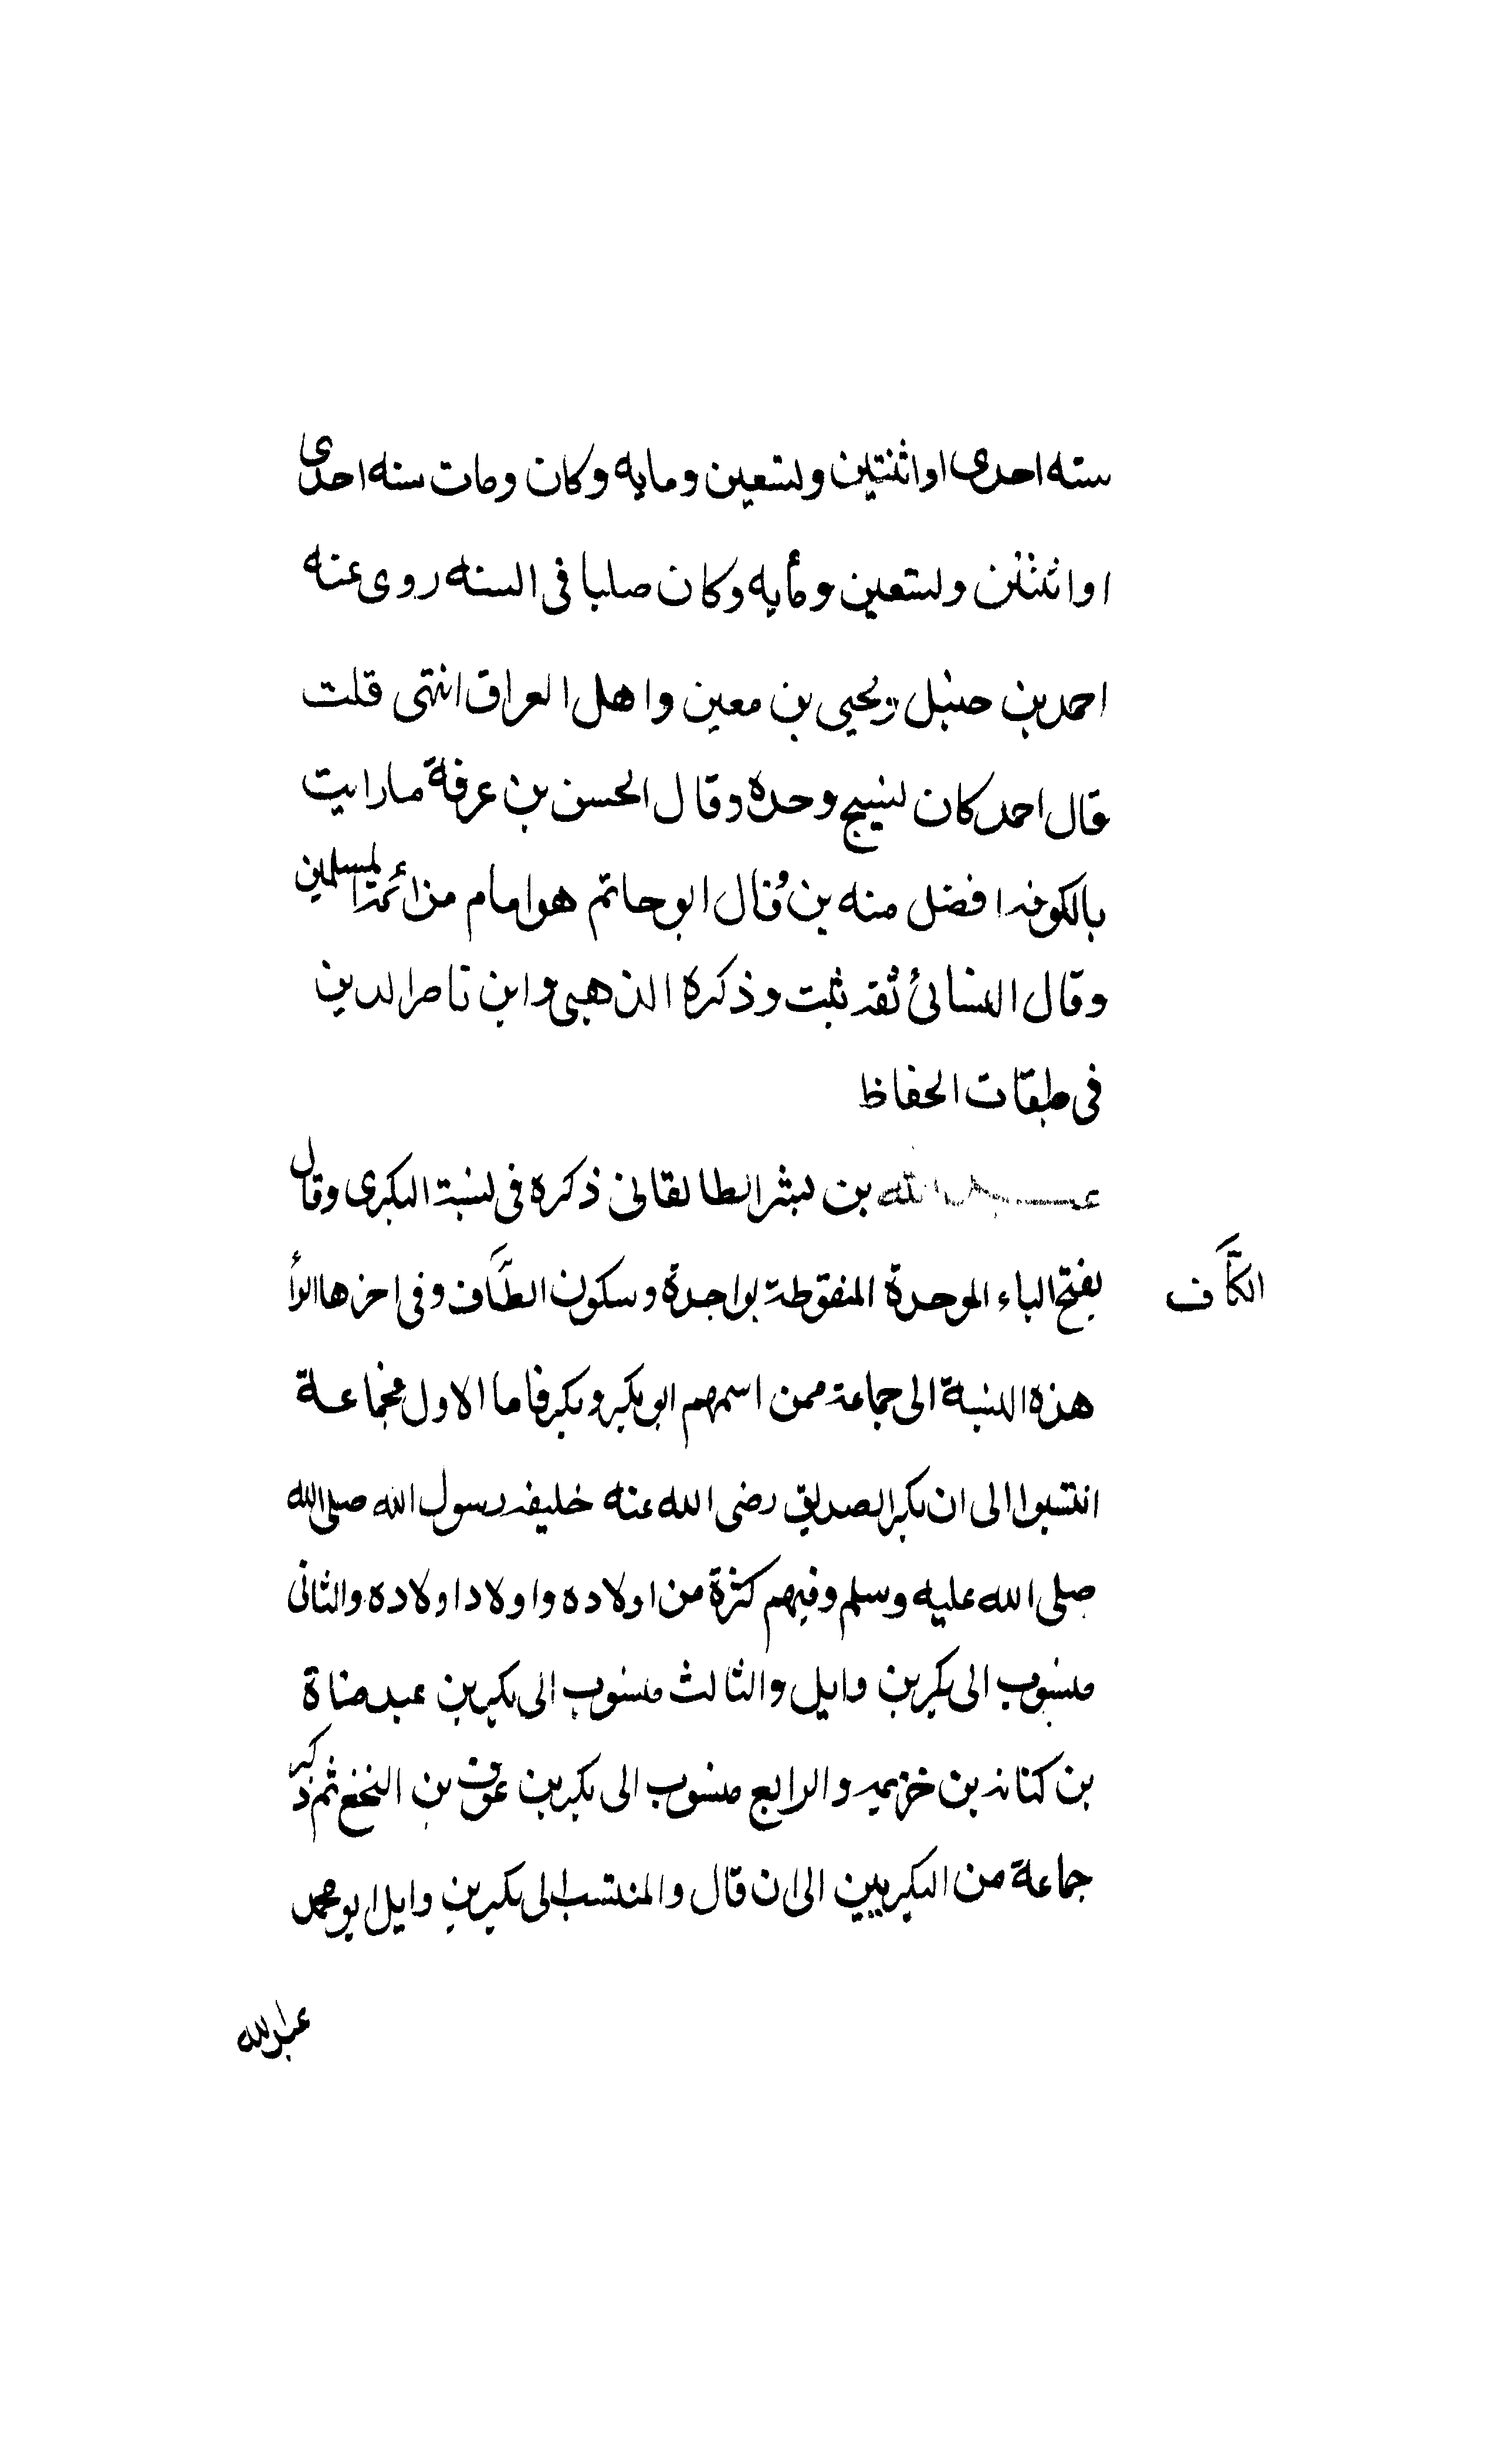 سنه احدى او اثنتين ولتسعين ومايه وكان ومات سنه احدى
او اثنتن ولستعين ومأيه وكان صلبا فى السنه روى عنه
احمد بن حنبل ويحيى بن معين واهل العراق انتهى قلت
قال احمد كان لنسيج وحده وقال الحسن بن عرفة ما رايت
بالكوفه افضل منه بن وقال ابو حاتم هو امام من ائمة المسلمين
وقال النسائى ثقه ثبت وذكره الذهبى وابن ناصر الدين
فى طبقات الحفاظ
عبد الله بن بشر الطالقانى ذكره فى نسبة البكرى وقال
بفتح الباء الموحدة المنقوطة بواحدة وسكون الطاف وفى اخرها الرأ
الكاف
هذه النسبة الى جماعة ممن اسمهم ابو بكر وبكر فاما الاول فجماعة
انتسبوا الى ان بكر الصديق رضى الله عنه خليفه رسول الله صلى الله
صلى الله عليه وسلم وفيهم كثرة من اولاده واولاد اولاده والثانى
منسوب الى بكر بن وايل والثالث منسوب الى بكر بن عبد مناة
بن كنانه بن خزيمه والرابع منسوب الى بكر بن عوف بن النخع ثم ذكر
جماعة من البكريين الى ان قال والمنتسب الى بكر بن وايل ابو محمد
عبد الله